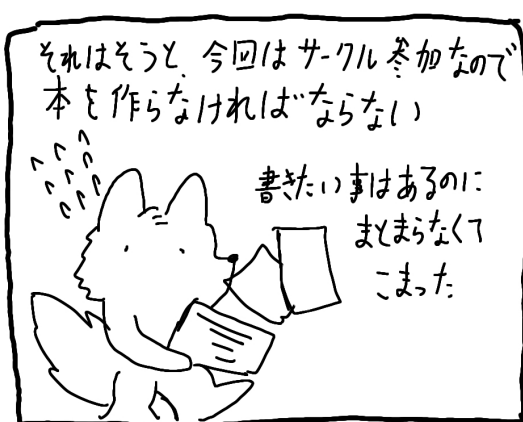 それはそうと、今回はサークル参加なので
本を作らなければならない
書きたい事はあるのに
まとまらなくて
こまった